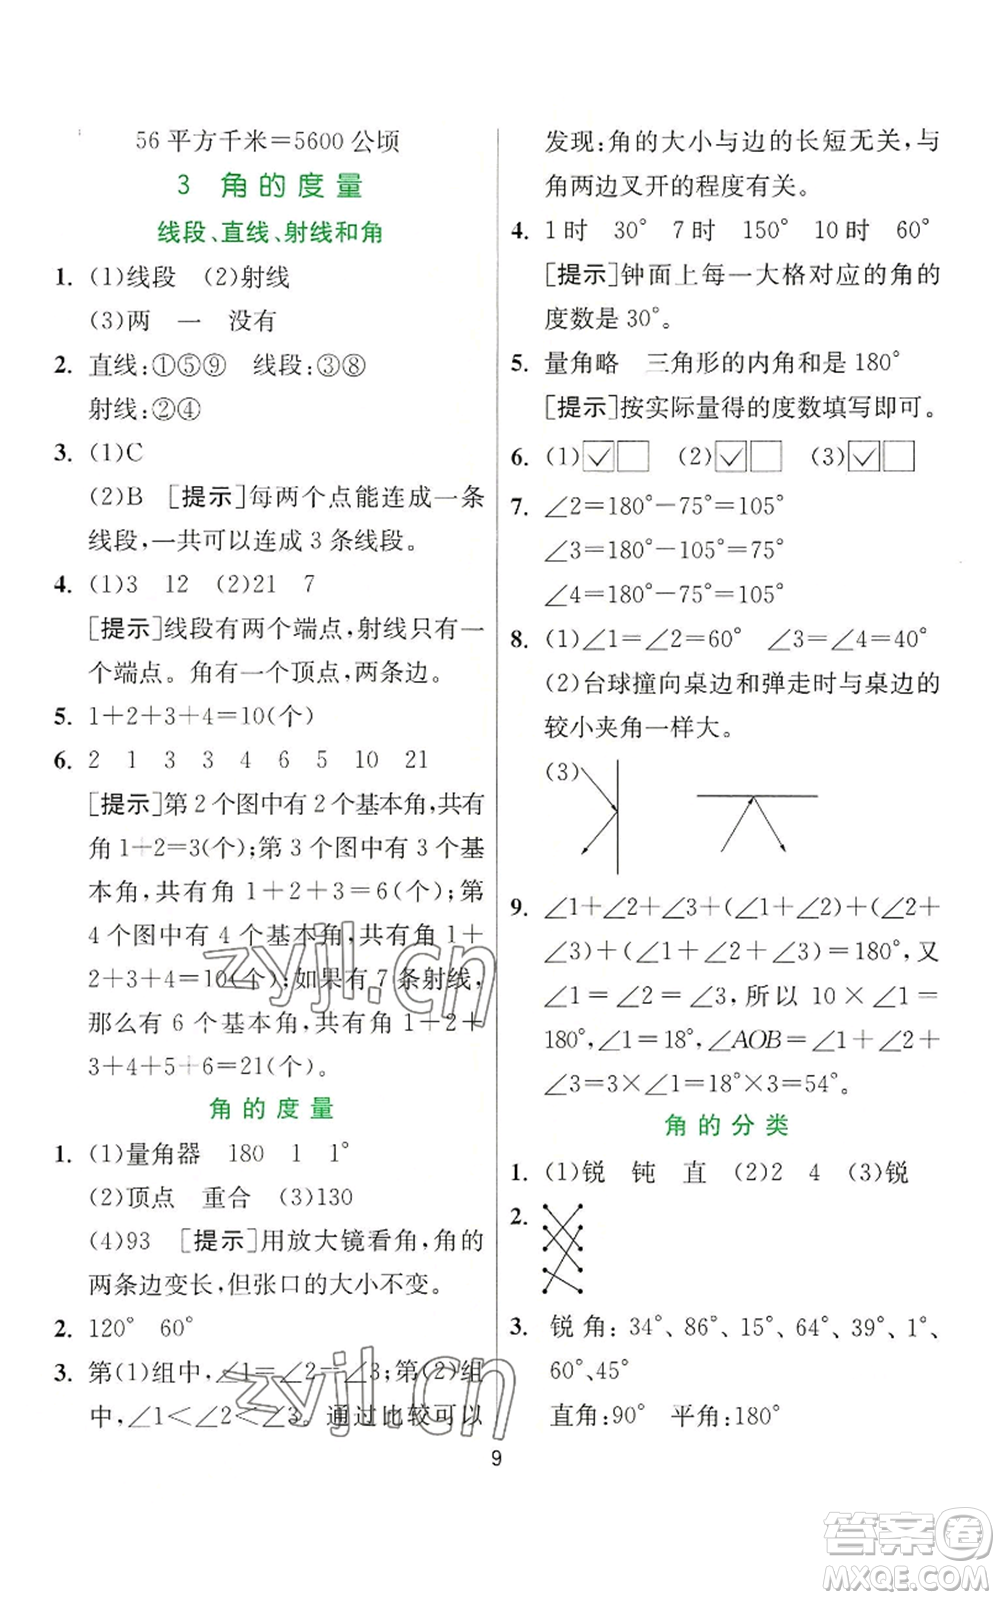 56平方千米=5600公顷
3 角的度量
线段、直线、射线和角
1. (1)线段 (2)射线
(3)两 一 没有
2. 直线:①⑤⑨ 线段:③⑧
射线:②④
3. (1)C
(2)B [提示]每两个点能连成一条
线段,一共可以连成3条线段。
4. (1)3 12 (2)21 7
[提示]线段有两个端点,射线只有一
个端点。角有一个顶点,两条边。
5. 1+2+3+4=10(个)
6. 2 1 3 3 4 6 5 10 21
[提示]第2个图中有2个基本角,共有
角1+2=3(个);第3个图中有3个基
本角,共有角1+2+3=6(个);第
4个图中有4个基本角,共有角1+
2+3+4=10(个);如果有7条射线,
那么有6个基本角,共有角1+2+
3+4+5+6=21(个)。
角的度量
1. (1)量角器 180 1 1°
(2)顶点 重合 (3)130
(4)93 [提示]用放大镜看角,角的
两条边变长,但张口的大小不变。
2. 120° 60°
3. 第(1)组中,∠1=∠2=∠3;第(2)组
中,∠1<∠2<∠3。通过比较可以
发现:角的大小与边的长短无关,与
角两边叉开的程度有关。
4. 1时 30° 7时 150° 10时 60°
[提示]钟面上每一大格对应的角的
度数是30°。
5. 量角略 三角形的内角和是180°
[提示]按实际量得的度数填写即可。
6. (1)☑□ (2)☑□ (3)☑□
7. ∠2=180°-75°=105°
∠3=180°-105°=75°
∠4=180°-75°=105°
8. (1)∠1=∠2=60° ∠3=∠4=40°
(2)台球撞向桌边和弹走时与桌边的
较小夹角一样大。
(3)
9. ∠1+∠2+∠3+(∠1+∠2)+(∠2+
∠3)+(∠1+∠2+∠3)=180°,又
∠1=∠2=∠3,所以10×∠1=
180°,∠1=18°,∠AOB=∠1+∠2+
∠3=3×∠1=18°×3=54°。
角的分类
1. (1)锐 钝 直 (2)2 4 (3)锐
2.
3. 锐角:34°、86°、15°、64°、39°、1°、
60°、45°
直角:90° 平角:180°
9
zyjl.cn
zyjl.cn
答案卷
MXQE.COM